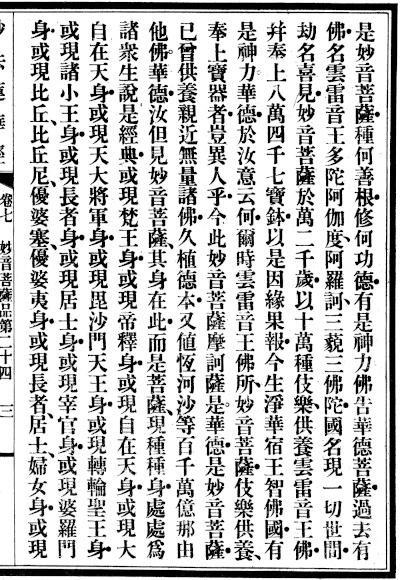 是妙音菩薩種何善根修何功德有是神力佛告華德菩薩過去有
佛名雲雷音王多陀阿伽度阿羅訶三藐三佛陀國名現一切世間
劫名喜見妙音菩薩於萬二千歲以十萬種伎樂供養雲雷音王佛
幷奉上八萬四千七寶鉢以是因緣果報今生淨華宿王智佛國有
是神力華德於汝意云何爾時雲雷音王佛所妙音菩薩伎樂供養
奉上寶器者豈異人乎今此妙音菩薩摩訶薩是華德是妙音菩薩
已曾供養親近無量諸佛久植德本又值恆河沙等百千萬億那由
他佛華德汝但見妙音菩薩其身在此而是菩薩現種種身處處爲
諸衆生說是經典或現梵王身或現帝釋身或現自在天身或現大
自在天身或現天大將軍身或現毘沙門天王身或現轉輪聖王身
或現諸小王身或現長者身或現居士身或現宰官身或現婆羅門
身或現比丘比丘尼優婆塞優婆夷身或現長者居士婦女身或現
卷七 妙音菩薩品第二十四 三